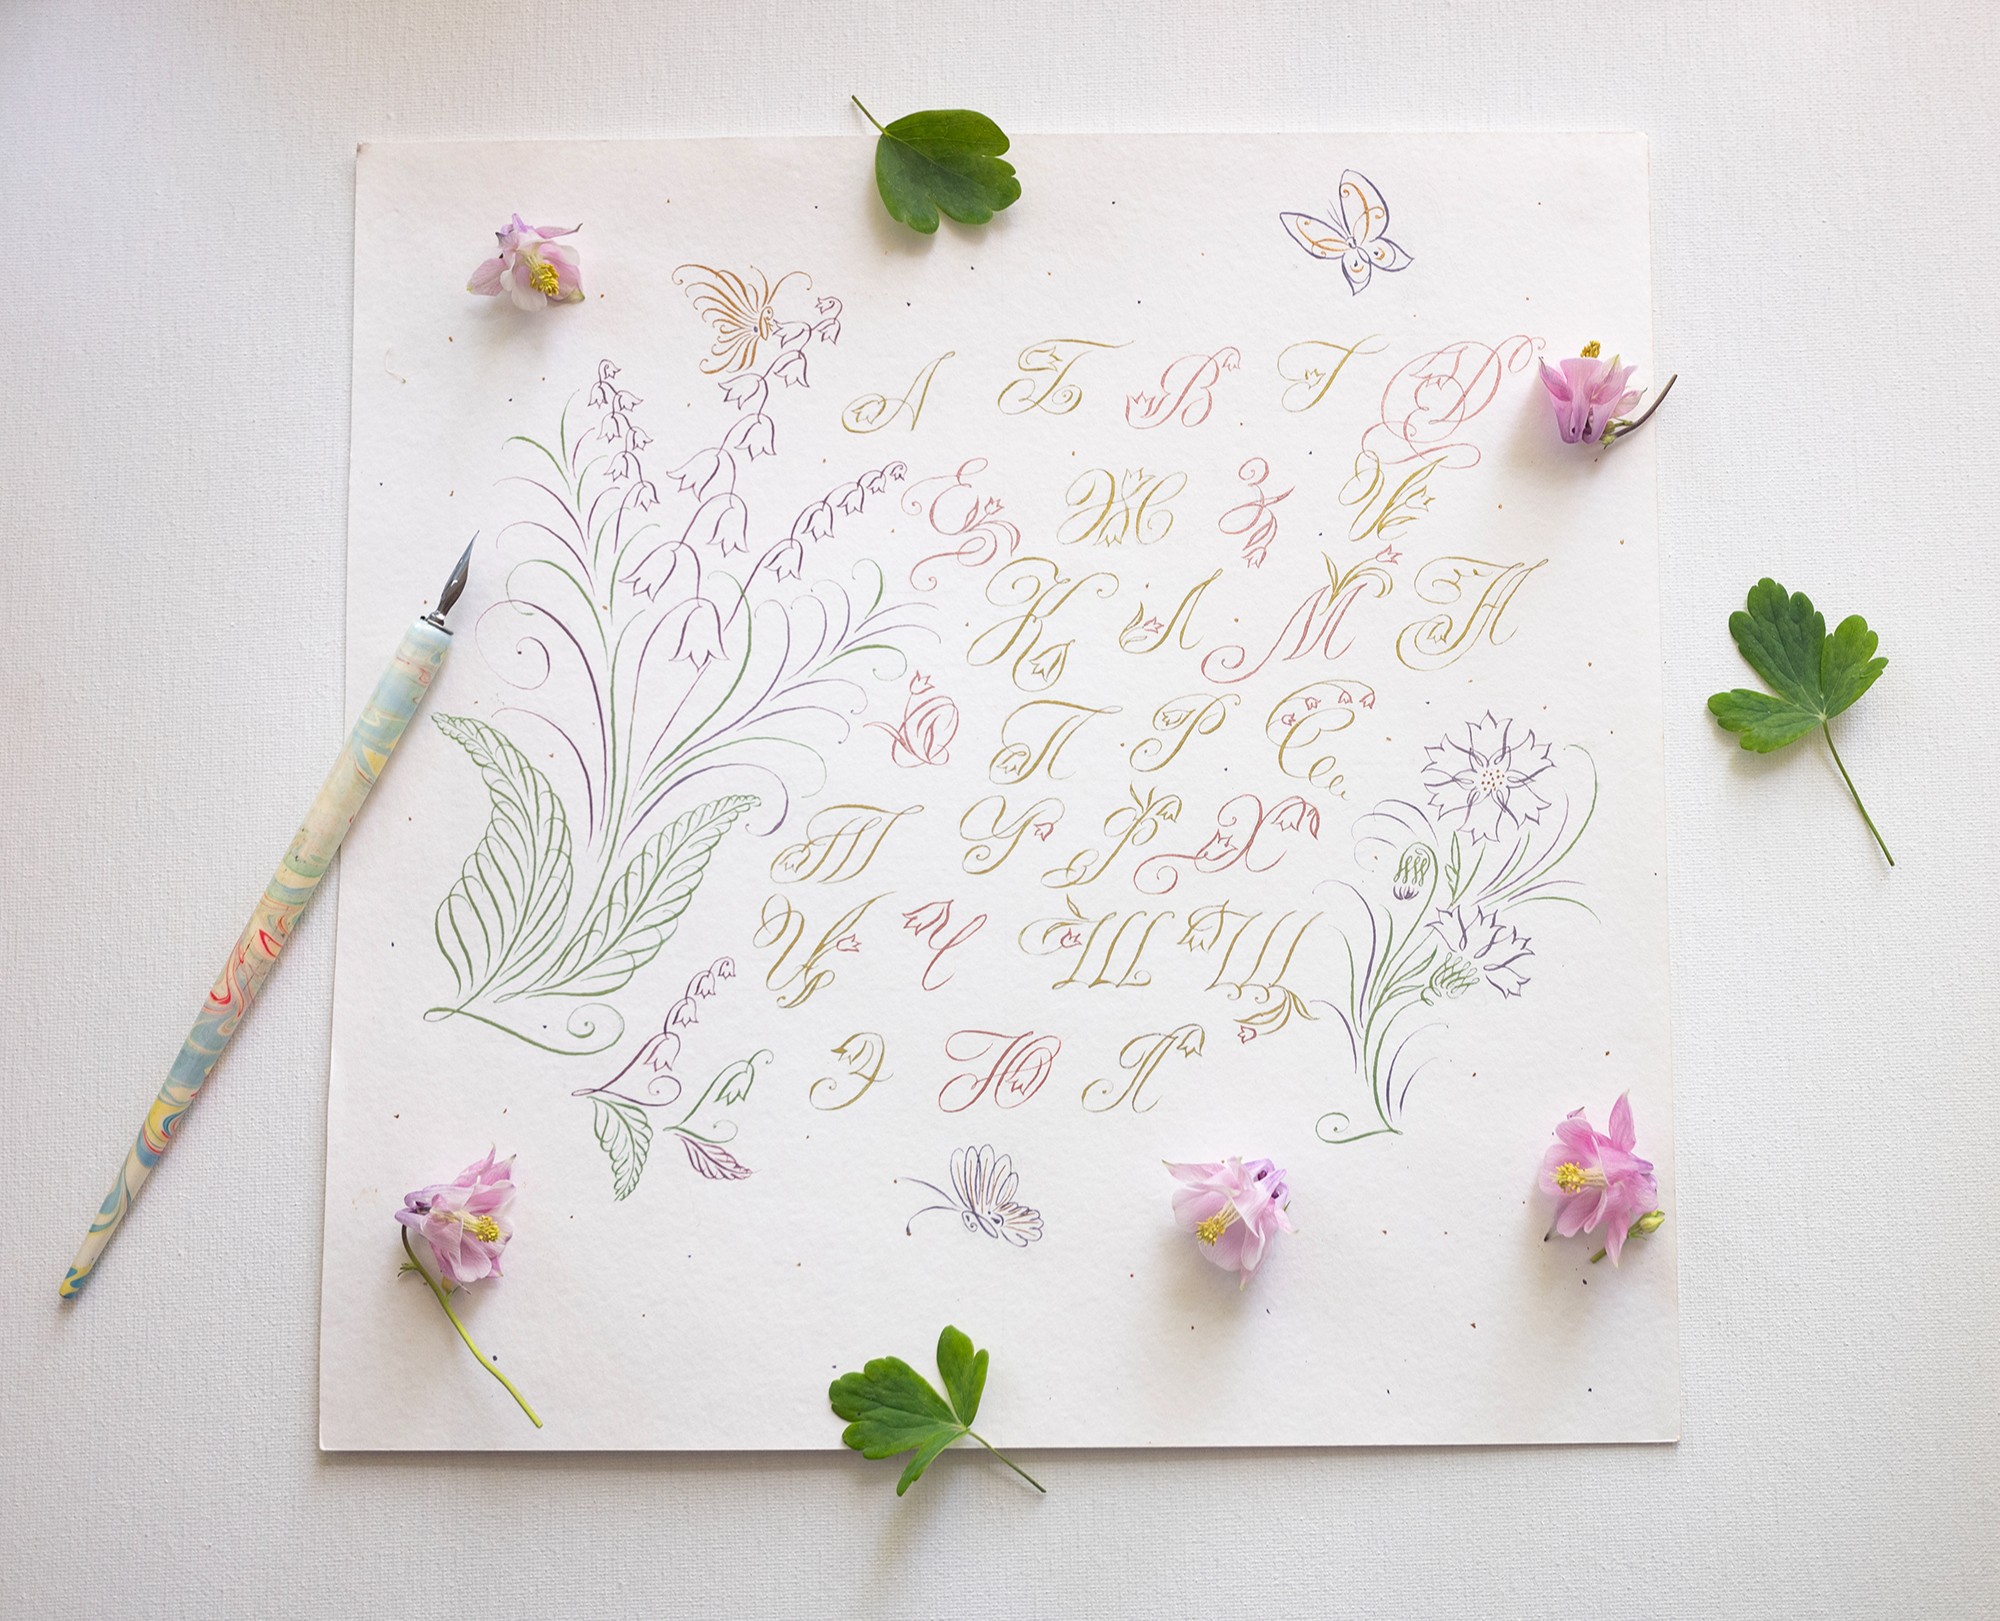 А Б В Г Д
Е Ж З И
К Л М Н
О П Р С
Т У Ф Х
Ц Ч Ш Щ
Э Ю Я